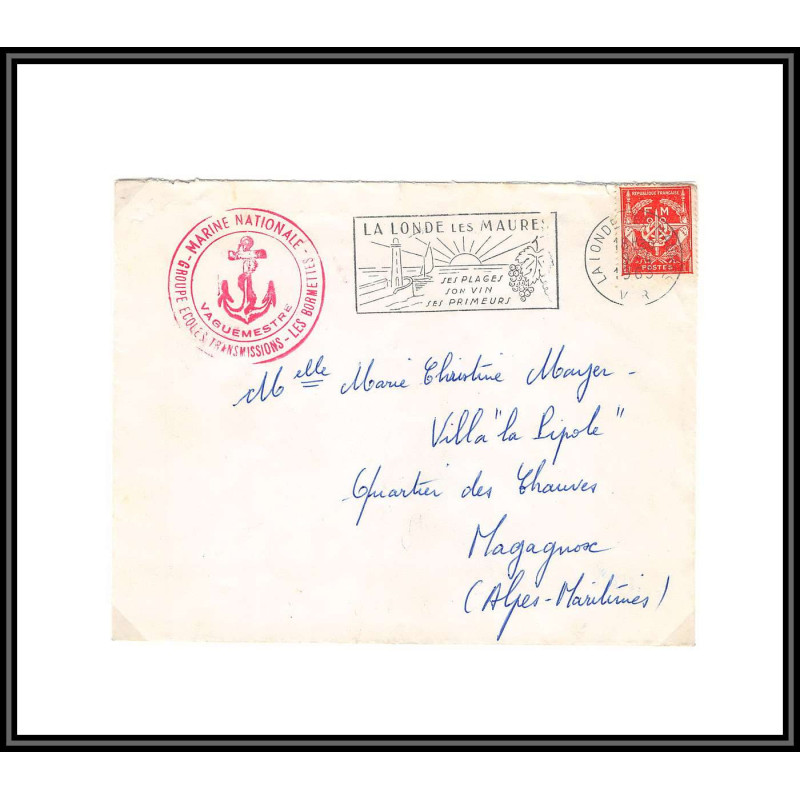 - MARINE NATIONALE -
GROUPE ECOLES TRANSMISSIONS - LES BORMETTES
VAGUEMESTRE
LA LONDE LES MAURES
SES PLAGES
SON VIN
SES PRIMEURS
LA LONDE
REPUBLIQUE FRANÇAISE
F M
POSTES
Melle Marie Christine Mayer -
Villa "la Pipole"
Quartier des Chauves
Magagnosc
(Alpes-Maritimes)